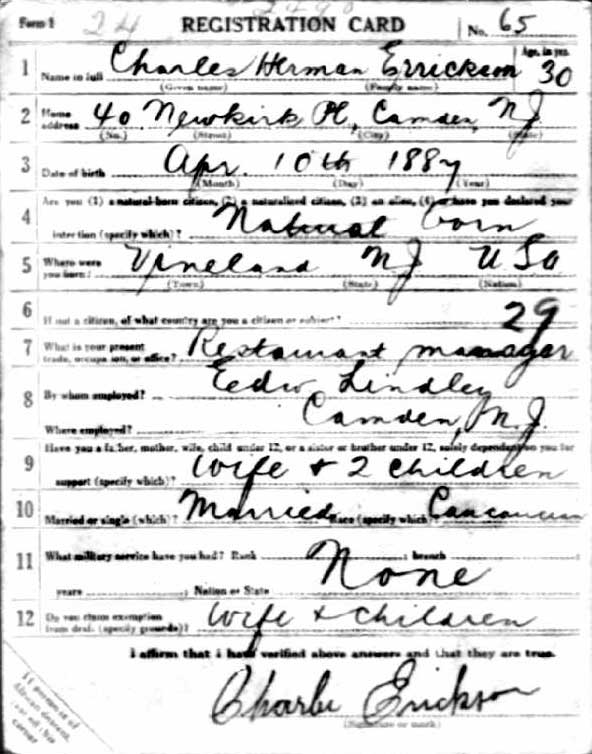 Form 1 24 REGISTRATION CARD No. 65
1 Name in full Charles Herman Errickson Age, in yrs. 30
(Given name) (Family name)
2 Home address 40 Newkirk Pl, Camden, NJ
(No.) (Street) (City) (State)
3 Date of birth Apr. 10th 1887
(Month) (Day) (Year)
Are you (1) a natural-born citizen, (2) a naturalized citizen, (3) an alien, (4) or have you declared your
4 intention (specify which)? Natural born
5 Where were you born? Vineland NJ USA
(Town) (State) (Nation)
6 If not a citizen, of what country are you a citizen or subject?
29
7 What is your present trade, occupation, or office? Restaurant manager
8 By whom employed? Edw Lindley
Where employed? Camden, N.J.
Have you a father, mother, wife, child under 12, or a sister or brother under 12, solely dependent on you for
9 support (specify which)? Wife + 2 children
10 Married or single (which)? Married Race (specify which)? Caucasian
11 What military service have you had? Rank ; branch ;
years ; Nation or State None
12 Do you claim exemption from draft (specify grounds)? Wife + children
I affirm that I have verified above answers and that they are true.
Charles Erickson
(Signature or mark)
If person is of
African descent,
corner